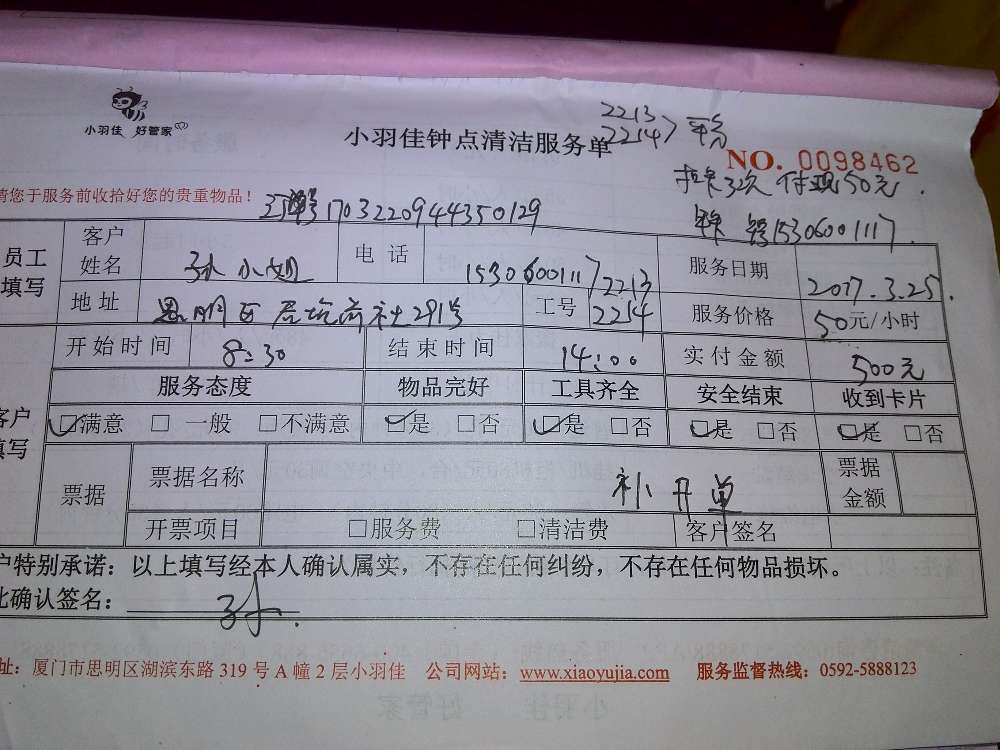 小羽佳 好管家
2213
小羽佳钟点清洁服务单 2214
NO. 0098462
付现50元.
请您于服务前收拾好您的贵重物品！ 1703220944350129
15306001117.
员工填写 客户姓名 孙小姐 电话 15306001117 服务日期 2017.3.25.
地址 思明区 291号 工号 2213 2214 服务价格 50元/小时
开始时间 8:30 结束时间 14:00 实付金额 500元
服务态度 物品完好 工具齐全 安全结束 收到卡片
客户填写 ☑满意 □ 一般 □不满意 ☑是 □否 ☑是 □否 ☑是 □否 ☑是 □否
票据 票据名称 补开单 票据金额
开票项目 □服务费 □清洁费 客户签名
户特别承诺：以上填写经本人确认属实，不存在任何纠纷，不存在任何物品损坏。
此确认签名： 孙
址：厦门市思明区湖滨东路 319 号 A 幢 2 层小羽佳 公司网站：www.xiaoyujia.com 服务监督热线：0592-5888123